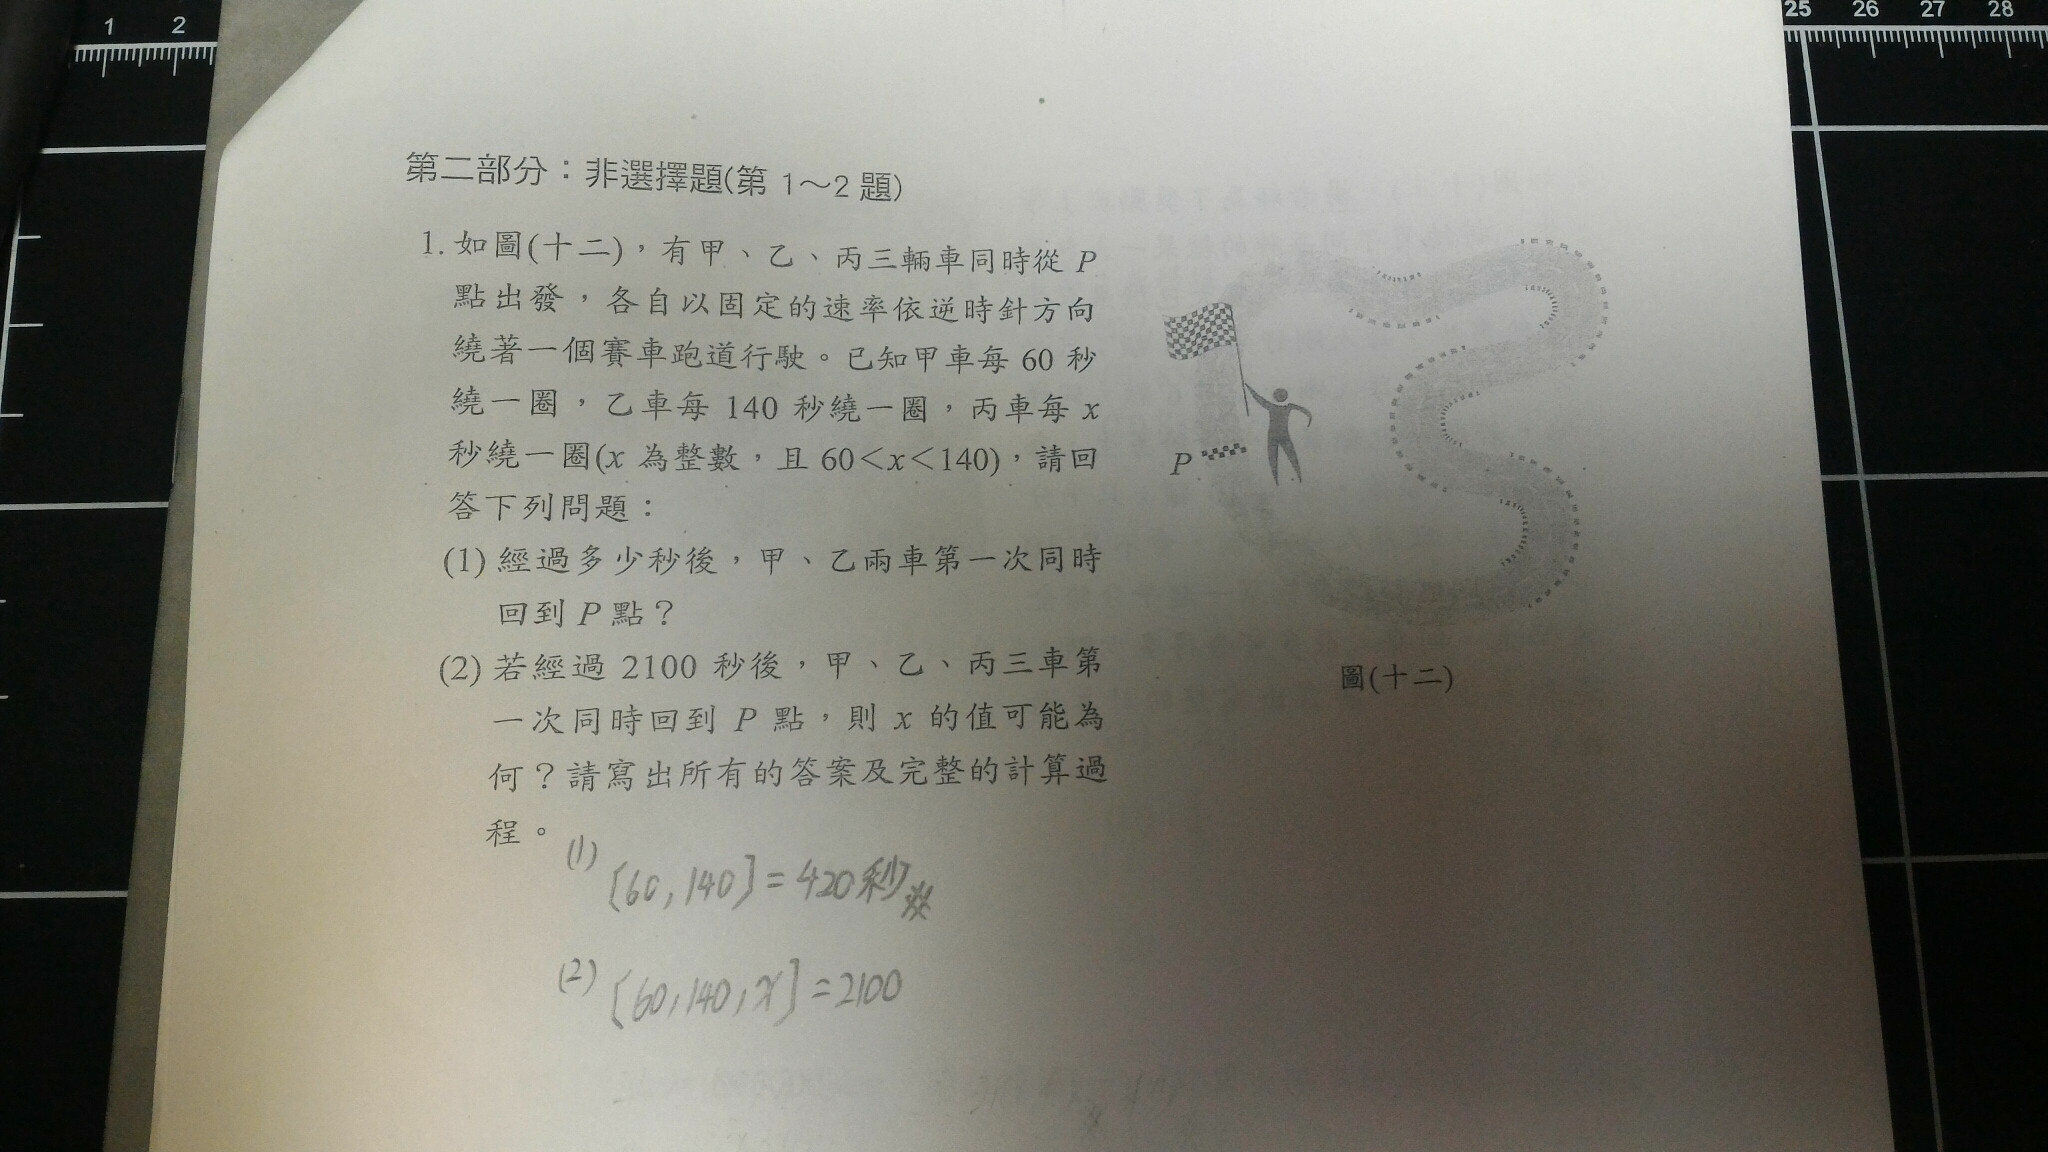 1 2
25 26 27 28
第二部分：非選擇題(第 1～2 題)
1. 如圖(十二)，有甲、乙、丙三輛車同時從 P
點出發，各自以固定的速率依逆時針方向
繞著一個賽車跑道行駛。已知甲車每 60 秒
繞一圈，乙車每 140 秒繞一圈，丙車每 x
秒繞一圈(x 為整數，且 60＜x＜140)，請回
答下列問題：
(1) 經過多少秒後，甲、乙兩車第一次同時
回到 P 點？
(2) 若經過 2100 秒後，甲、乙、丙三車第
一次同時回到 P 點，則 x 的值可能為
何？請寫出所有的答案及完整的計算過
程。
P
圖(十二)
(1) [60,140]=420秒
(2) [60,140,x]=2100